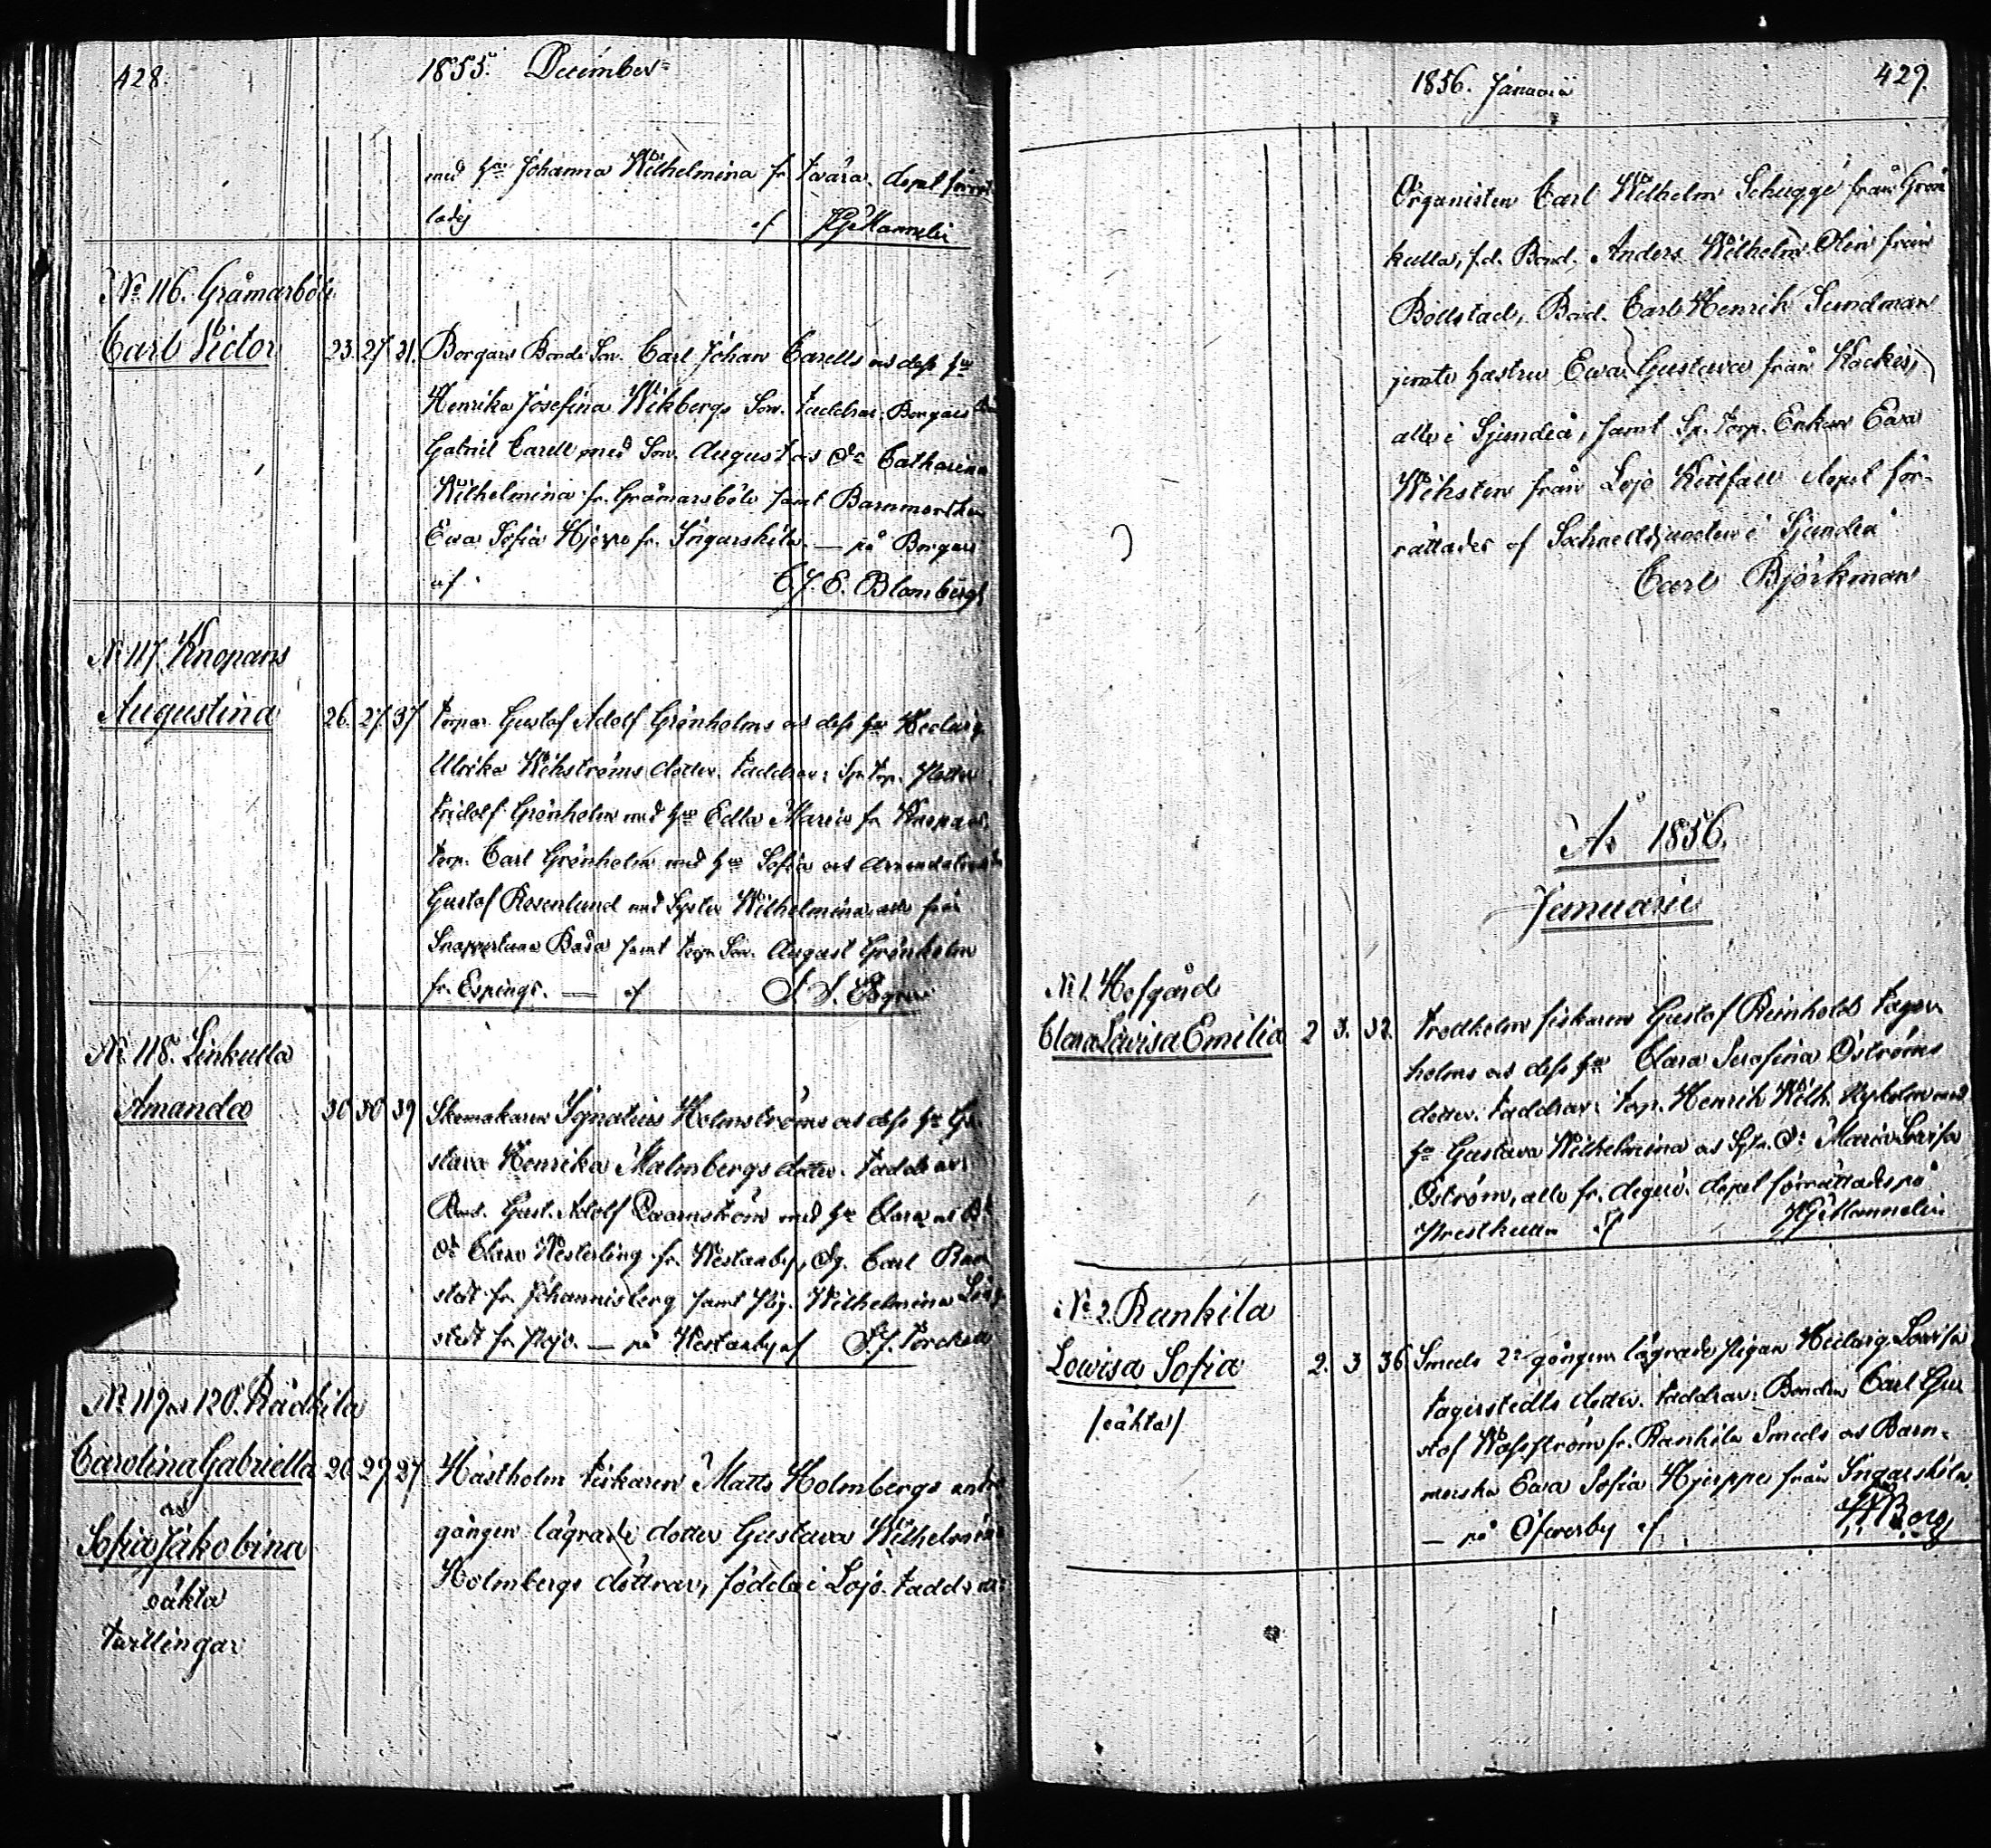 428.
1855. December
med hu Johanna Wilhelmina fr. Svara. dopet förrät
tady af HGManneli
No 116. Gråmarböle
Carl Victor 23. 27. 31. Borgars Bonde Son. Carl Johan Carells och dess hu
Henrika Josefina Wikbergs Son. Faddrar. Borgars
Gabriel Carell med Son. August och Dr Catharina
Wilhelmina fr. Gråmarsböle samt Barnmorskan
Ewa Sofia Hjerpe fr. Ingarskila. — på Borgars
af C. J. E. Blomberg
No 117. Knopans
Augustina 26. 27. 37 Torpar. Gustaf Adolf Grönholms och dess hu Hedwig
Ulrika Wikströms dotter. Faddrar: Sp. Torp.
Fridolf Grönholm med hu Edla Maria fr. Knopans,
Torp. Carl Grönholm med hu Sofia och
Gustaf Rosenlund med Syster Wilhelmina, alla från
Snappertuna Båsa samt Torp. Son. August Grönholm
fr. Espings. — af
No 118. Linkulla
Amanda 30 30 39 Skomakaren Ignatius Holmströms och dess hu Gu
stava Henrika Malmbergs dotter. Faddrar:
Bond. Gust. Adolf Qvarnström med hu Clara och
Dr Clara Westerling fr. Westanby, Dg. Carl
stedt fr. Johannisberg samt Pig. Wilhelmina
stedt fr. Pojo. — på Westanby af
No 119 och 120. Rådkila
Carolina Gabriella 26 29 27 Hästholm Fiskaren Matts Holmbergs andra
och
gången lägrade dotter Gustava Wilhelmina
Sofia Jakobina
Holmbergs döttrar, födda i Lojo. Faddrar:
oäkta
Twillingar
1856. Januarii
429.
Organisten Carl Wilhelm Schugge från Grän
kulla, f.d. Bond. Anders Wilhelm Olin från
Böllstad, Bond. Carl Henrik Sundman
jemte hustru Ewa Gustava från Kockis,
alla i Sjundeå, samt Sp. Torp. Enkan Ewa
Wiksten från Lojo Kittfall dopet för-
rättades af Sockneadjuncten i Sjundeå
Carl Björkman
År 1856.
Januarii
No 1. Hofgård
Clara Lovisa Emilia 2 3. 32. Tredholm fiskaren Gustaf Reinhold Fager
holms och dess hu Clara Serafina Öströms
dotter. Faddrar: Torp. Henrik Wilh. Nyholm med
hu Gustava Wilhelmina och Sytn. Dr Maria Lovisa
Öström, alla fr. Degerö. dopet förrättades på
Prestkulla af HGManneli
No 2. Rankila
Lowisa Sofia 2. 3 36 Smeds 2a gången lägrade pigan Hedwig Lovisa
Fagerstedts dotter. Faddrar: Bonden Carl Gu
/oäkta/
stof Wasström fr. Rankila Smeds och Barn-
morska Ewa Sofia Hjerppe från Ingarskila.
— på Öfwerby af Borg